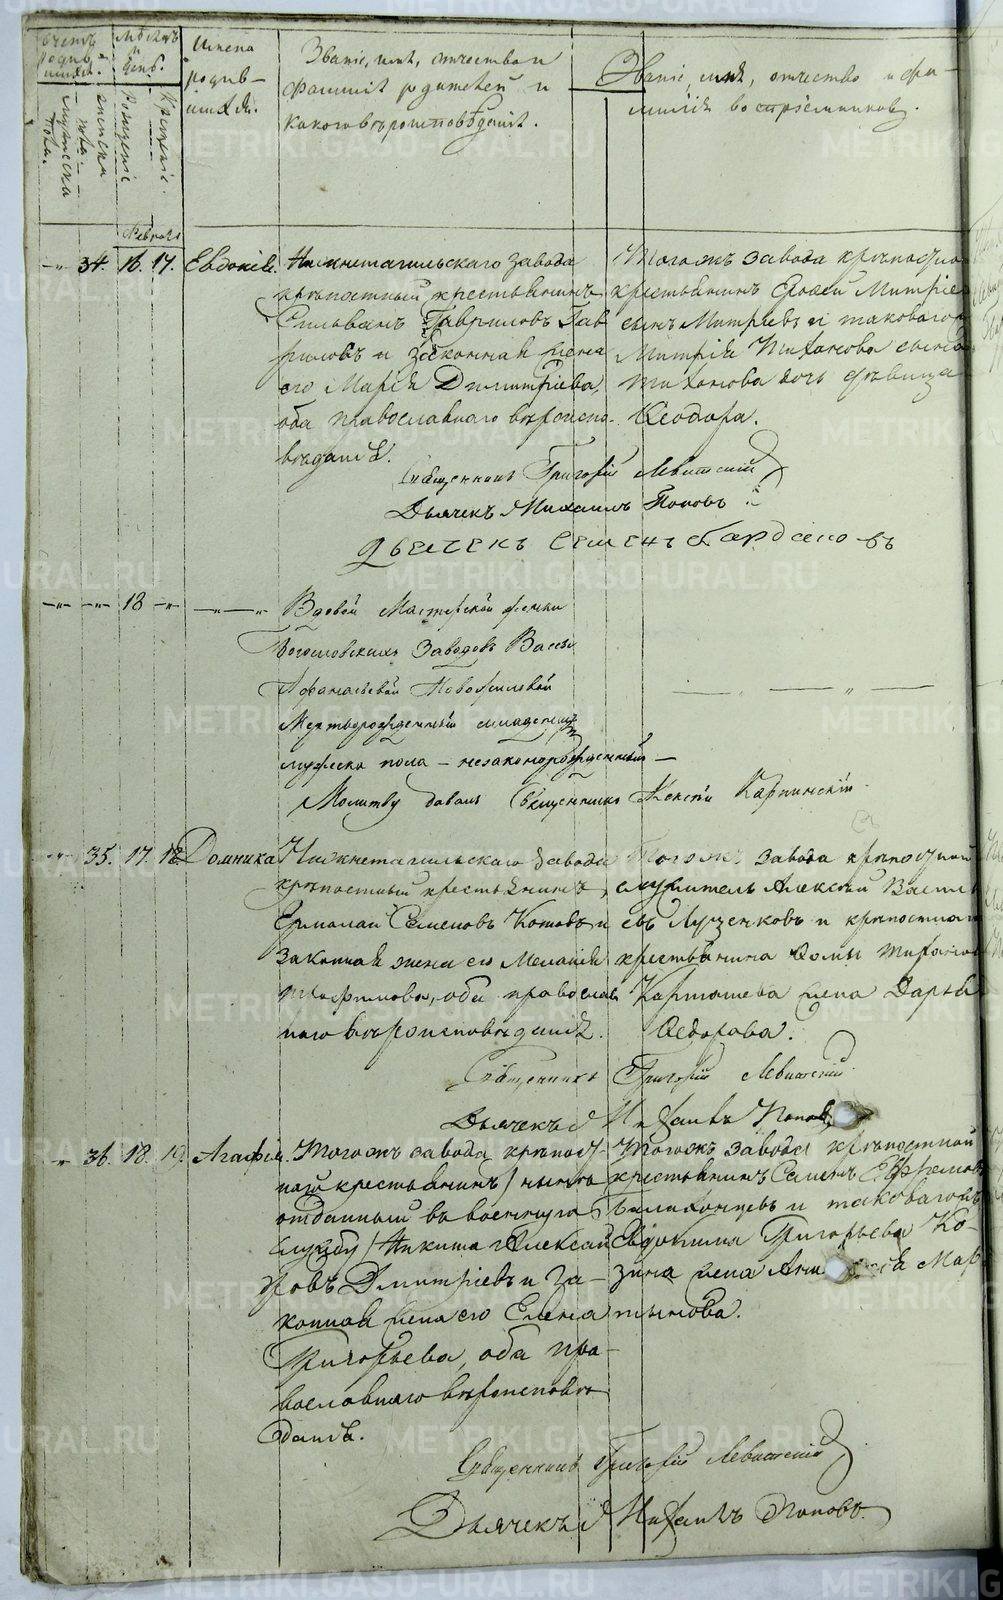 Счетъ родив-шихся.
мужеска пола.
женска пола.
Мѣсяцъ и день.
рожденіе
крещеніе.
Имена
родив-
шихся.
Званіе, имя, отчество и
фамилія родителей и
какого вѣроисповѣданія.
Званіе, имя, отчество и фа-
милія воспріемниковъ.
Февраль
34. 16. 17. Евдокія.
Нижнетагильскаго завода
крѣпостный крестьянинъ
Сильванъ Гавриловъ Гав
риловъ и законная жена
его Марія Димитріева,
оба православнаго вѣроиспо-
вѣданія.
Тогожъ завода крѣпостно
крестьянинъ Митріе
сынъ Митріевъ и таковаго
Митрія Тихонова сына
Тихонова дочь дѣвица
Ѳеодора.
Священникъ Григорій Левитскій
Дьячекъ Михаилъ Поповъ
Дьячекъ Семенъ
18
Вдовой Мастерской женки
Богословскихъ Заводовъ Вассы
Афанасьевой Новожиловой
Мертворожденный младенецъ
мужеска пола - незаконорожденный -
Молитву давалъ Священникъ Алексѣй Карпинскій
35. 17. 18. Домника
Нижнетагильскаго завода
крѣпостный крестьянинъ
Ермолай Семеновъ Котовъ и
законная жена его Меланія
Трофимова, оба православ
наго вѣроисповѣданія.
Тогожъ завода крѣпостной
служитель Алексѣй Василь
евъ Лузенковъ и крѣпостнаго
крестьянина Ѳомы Тиханов
Карташева жена Дарья
Ѳедорова.
Священникъ Григорій Левитскій
Дьячекъ Михаилъ Поповъ
36. 18. 19. Агафія.
Тогожъ завода крѣпост-
ной крестьянинъ / нынѣ
отданный въ военную
службу / Никита Алексан
ровъ Дмитріевъ и за-
конная жена его Елена
Григорьева, оба пра-
вославнаго вѣроисповѣ
данія.
Тогожъ завода крѣпостной
крестьянинъ Семенъ Ефремов
и таковагожъ
Евдокима Григорьева Ко-
зина жена Мар
тынова.
Священникъ Григорій Левитскій
Дьячекъ Михаилъ Поповъ.
METRIKI.GASO-URAL.RU